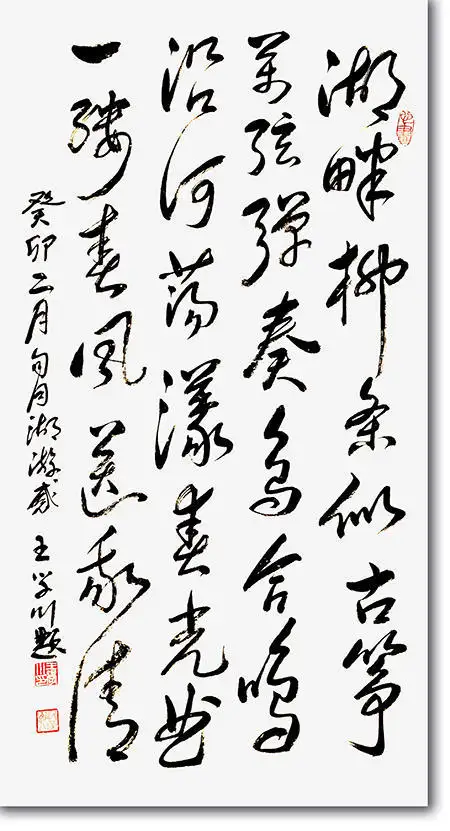 湖畔柳条似古筝
万弦弹奏鸟合鸣
沿河荡漾春光曲
一缕春风送我情
癸卯二月旬月湖游感 王学川题